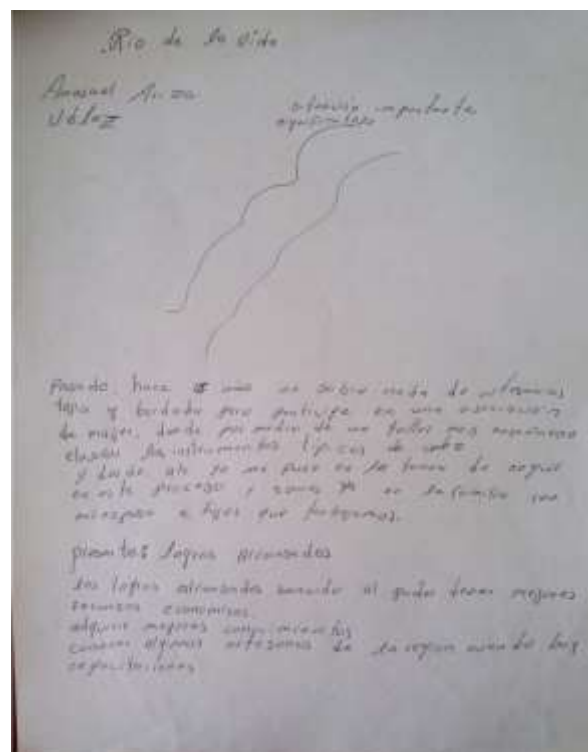 Rio de la vida
Vélez
importante
Pasado, hace 5 años no sabia nada de
tapia y bordado pero participe en una asociación
de mujer, donde por medio de un taller nos enseñaron
elaborar los instrumentos tipicos de
y desde ahi yo me puse en la tarea de seguir
en este proceso y somos ya en la familia con
mi esposo e hijos que trabajamos.
presente: logros alcanzados
los logros alcanzados al poder tener mejores
recursos economicos.
adquirir mejores conocimientos
conocer algunos artesanos de la region cuando hay
capacitaciones